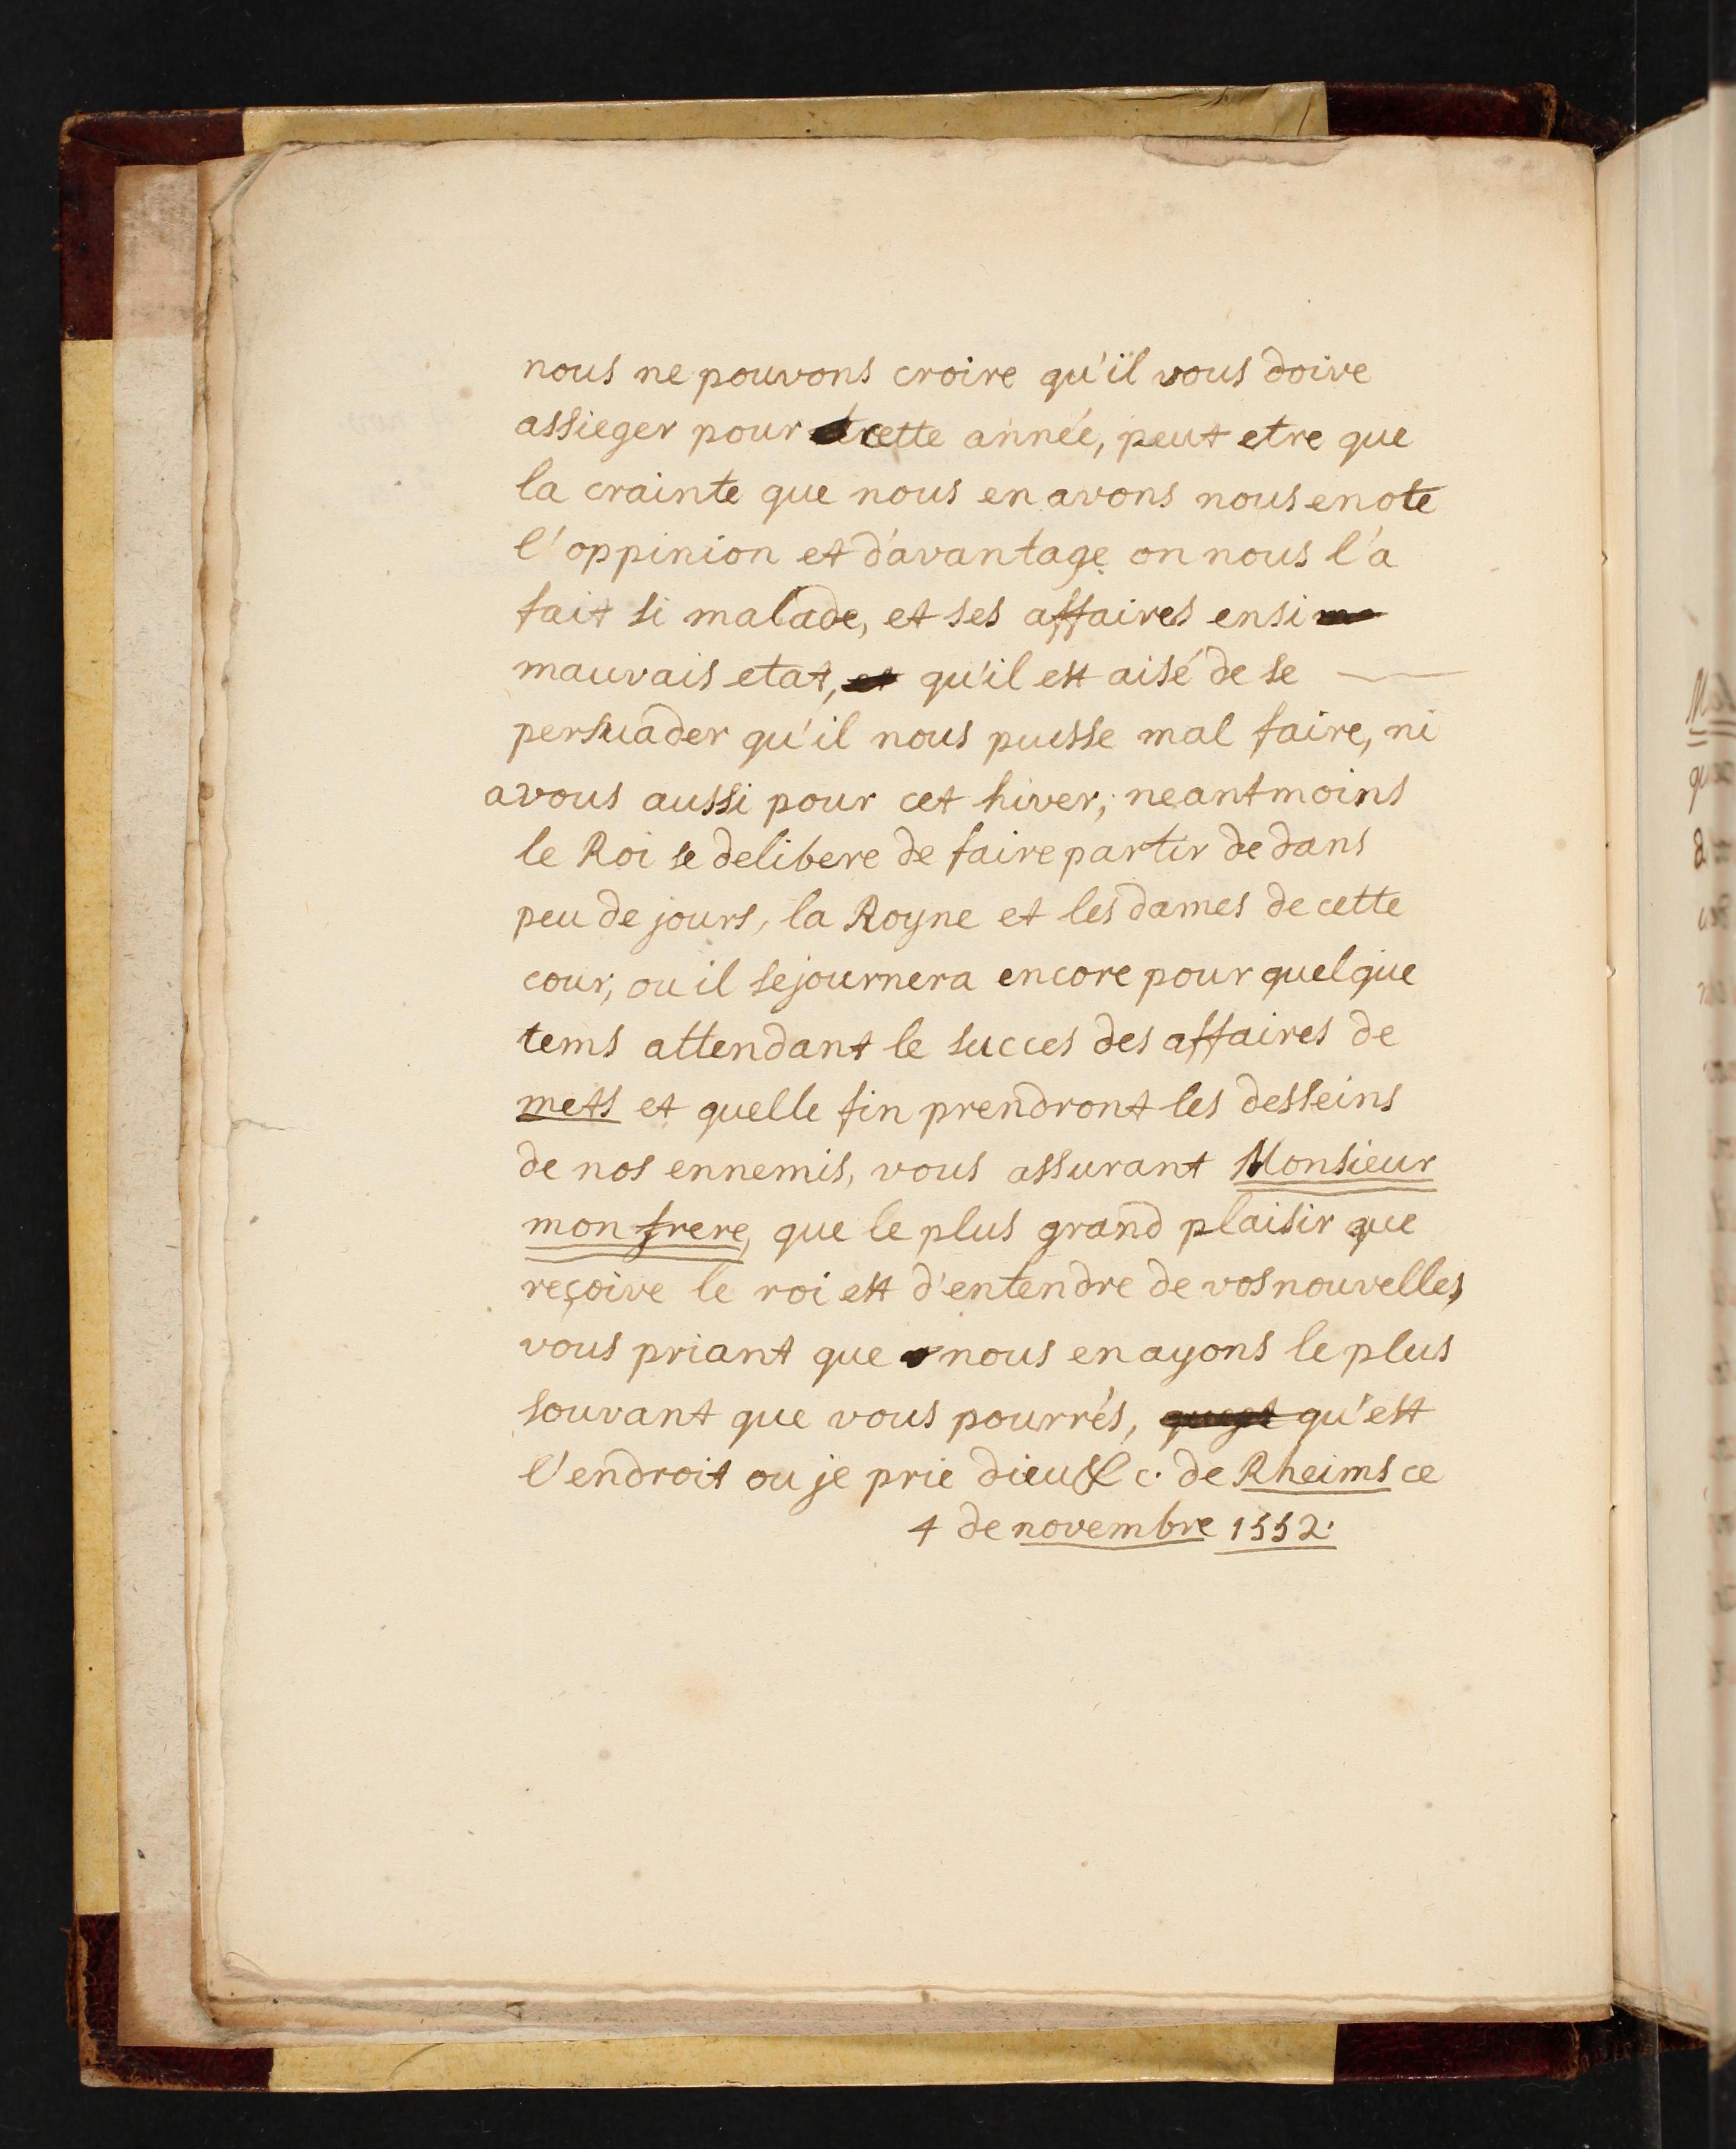 nous ne pouvons croire qu'il vous doive
assieger pour cette année, peut etre que
la crainte que nous en avons nous en ote
l'oppinion et d'avantage on nous l'a
fait si malade, et ses affaires en si
mauvais etat, et qu'il est aisé de se
persuader qu'il nous puisse mal faire, ni
a vous aussi pour cet hiver, neantmoins
le Roi se delibere de faire partir de dans
peu de jours, la Royne et les dames de cette
cour, ou il sejournera encore pour quelque
tems attendant le succes des affaires de
mets et quelle fin prendront les desseins
de nos ennemis, vous assurant Monsieur
mon frere, que le plus grand plaisir que
reçoive le roi est d'entendre de vos nouvelles,
vous priant que nous en ayons le plus
souvant que vous pourrés, qu'est
l'endroit ou je prie dieu &c. de Rheims ce
4 de novembre 1552.